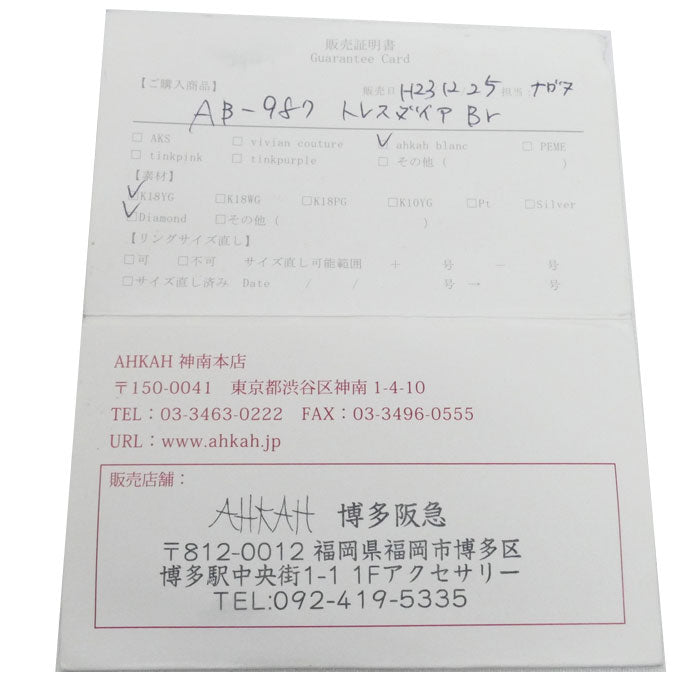 販売証明書
Guarantee Card
【ご購入商品】 販売日 H23 12 25 担当:
AB-987 トレスダイア Br
□ AKS □ vivian couture ☑ ahkah blanc □ PEME
□ tinkpink □ tinkpurple □ その他 ( )
【素材】
☑K18YG □K18WG □K18PG □K10YG □Pt □Silver
☑Diamond □その他 ( )
【リングサイズ直し】
□可 □不可 サイズ直し可能範囲 + 号 － 号
□サイズ直し済み Date / / 号 → 号
AHKAH 神南本店
〒150-0041 東京都渋谷区神南 1-4-10
TEL：03-3463-0222 FAX：03-3496-0555
URL：www.ahkah.jp
販売店舗：
AHKAH 博多阪急
〒812-0012 福岡県福岡市博多区
博多駅中央街1-1 1Fアクセサリー
TEL:092-419-5335